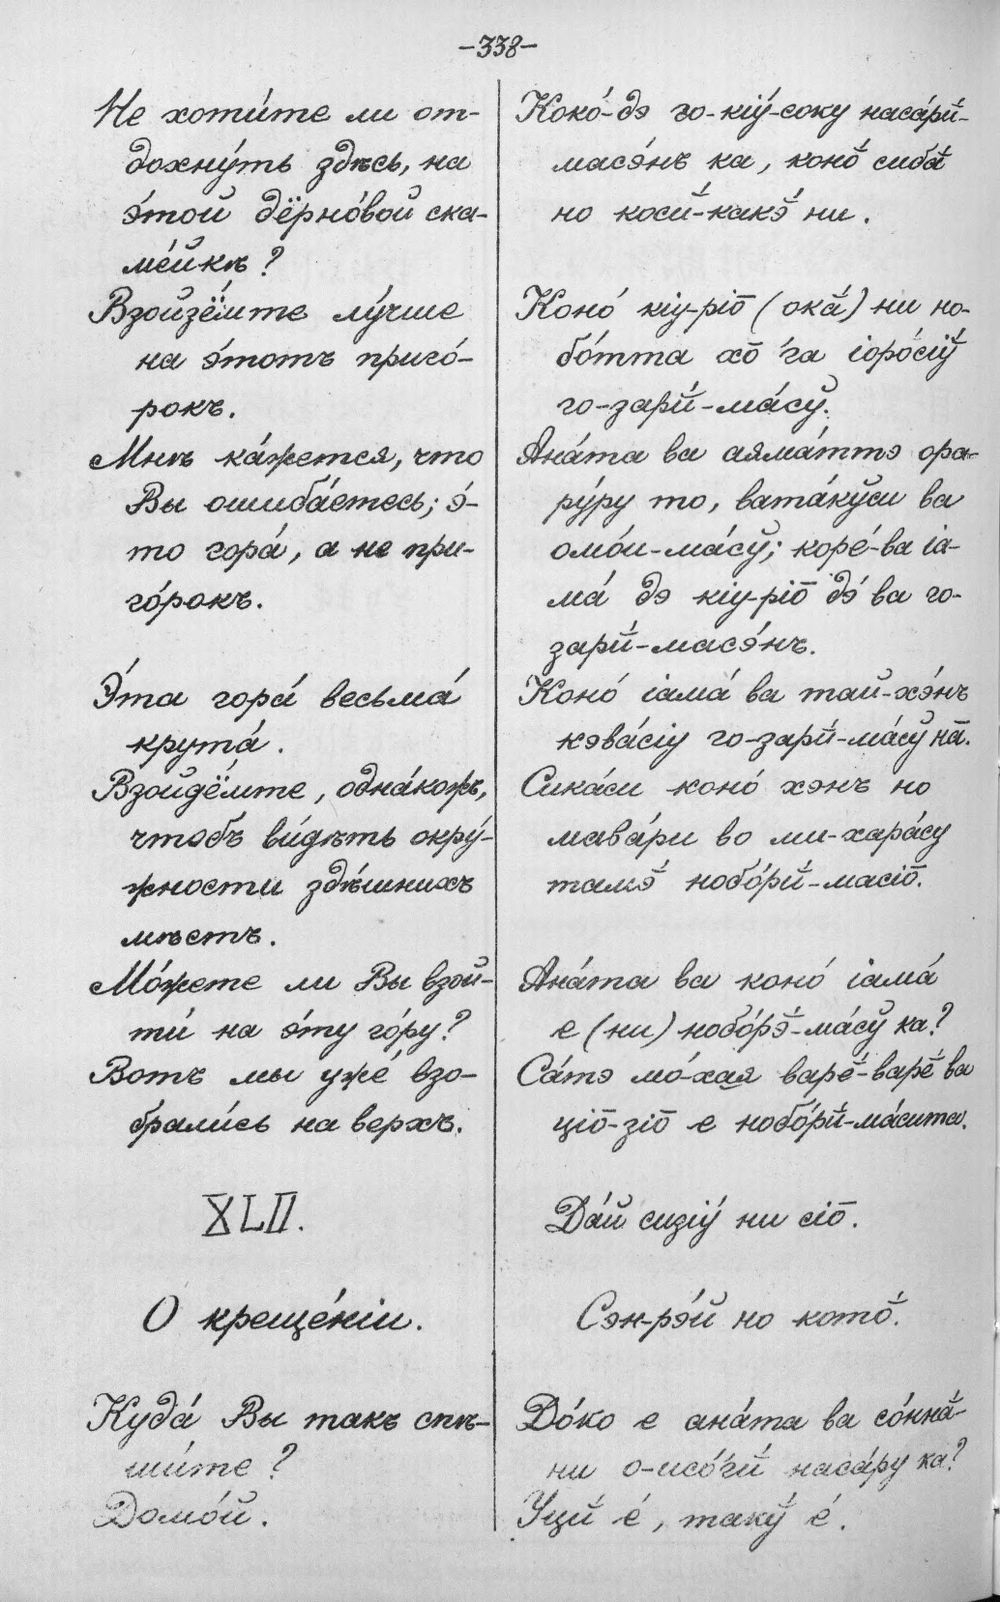 -338-
Не хоти́те ли от-
дохну́ть здѣсь, на
э́той дёрно́вой ска-
ме́йкѣ?
Взойзё́мте лу́чше
на э́тотъ приго́-
рокъ.
Мнѣ ка́жется, что
Вы ошиба́етесь; э́-
то гора́, а не при-
го́рокъ.
Э́та гора́ весьма́
крута́.
Взойдё́мте, одна́кожъ,
чтобъ ви́дѣть окру́-
жности здѣ́шнихъ
мѣстъ.
Мо́жете ли Вы взой-
ти́ на э́ту го́ру?
Вотъ мы уже́ взо-
брали́сь на верхъ.
XLII.
О креще́ніи.
Куда́ Вы такъ спѣ-
ши́те?
Домо́й.
Коко́-дэ го-кіӯ́-соку наса́рӣ-
масэ́нъ ка, коно̄́ сиба̄́
но косӣ́-какэ̄́ ни.
Коно́ кіу-ріо̄ (ока̄́) ни но-
бо́тта хо̄ ́га іоро́сіӯ́
го-зарӣ́-ма́сӯ.
Ана́та ва аяма́ттэ ора-
ру́ру то, вата́куси ва
омо́и-ма́сӯ; коре́-ва іа-
ма́ дэ кіу-ріо̄ дэ́ ва го-
зарӣ́-масэ́нъ.
Коно́ іама́ ва тай-хэ́нъ
кэва́сіу го-зарӣ́-ма́сӯ на̄.
Сика́си коно́ хэнъ но
мава́ри во ми-хара́су
тамэ̄́ нобо́рӣ́-масіо̄.
Ана́та ва коно́ іама́
е (ни) нобо́рэ̄́-ма́сӯ ка?
Са́тэ мо́-хая варе̄́-варе̄́ ва
ціо̄-зіо̄ е нобо́рӣ́-ма́сита.
Да́й сизіу́ ни сіо̄.
Сэн-рэ́й но кото̄́.
До́ко е ана́та ва со́нна̄́-
ни о-исо́гӣ наса́ру ка?
Уцӣ е́, такӯ́ е́.